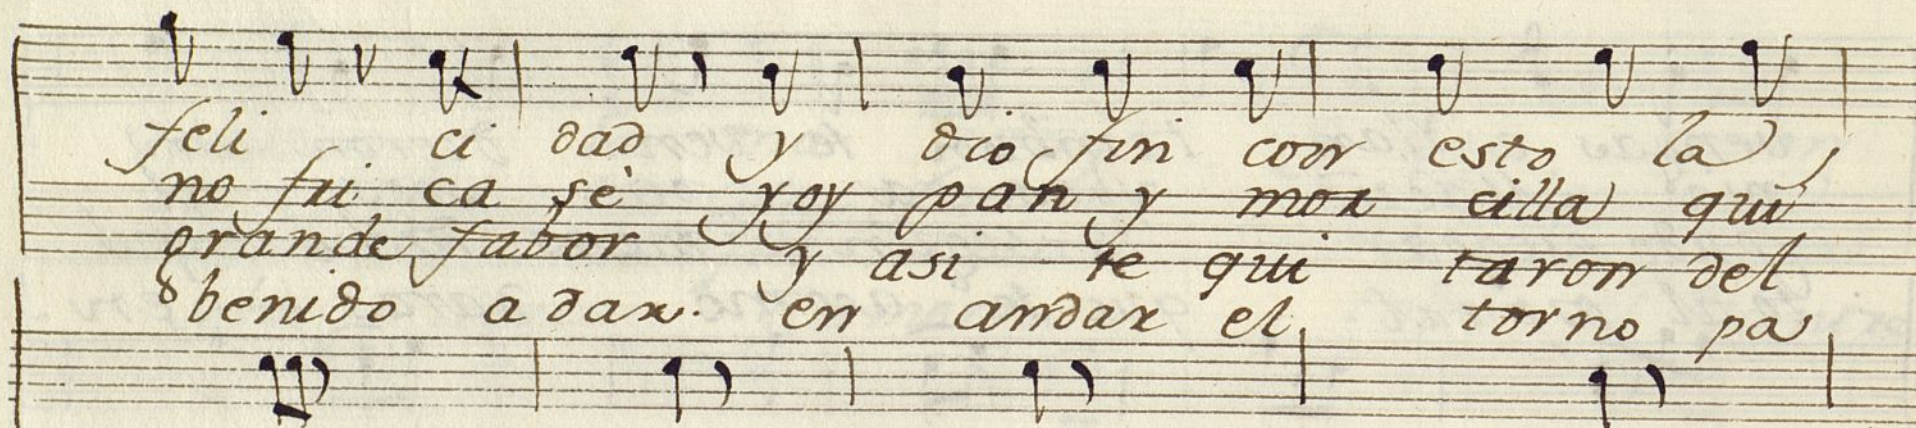 feli ci dad y dio fin con esto la
no fri ca sè y oy pan y mor cilla qui
grande fabor y asi te qui taron del
benido a dar en andar el torno pa